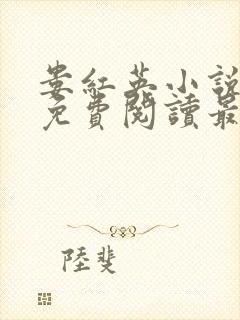 婁紅英小說
免費閱讀最
陸斐